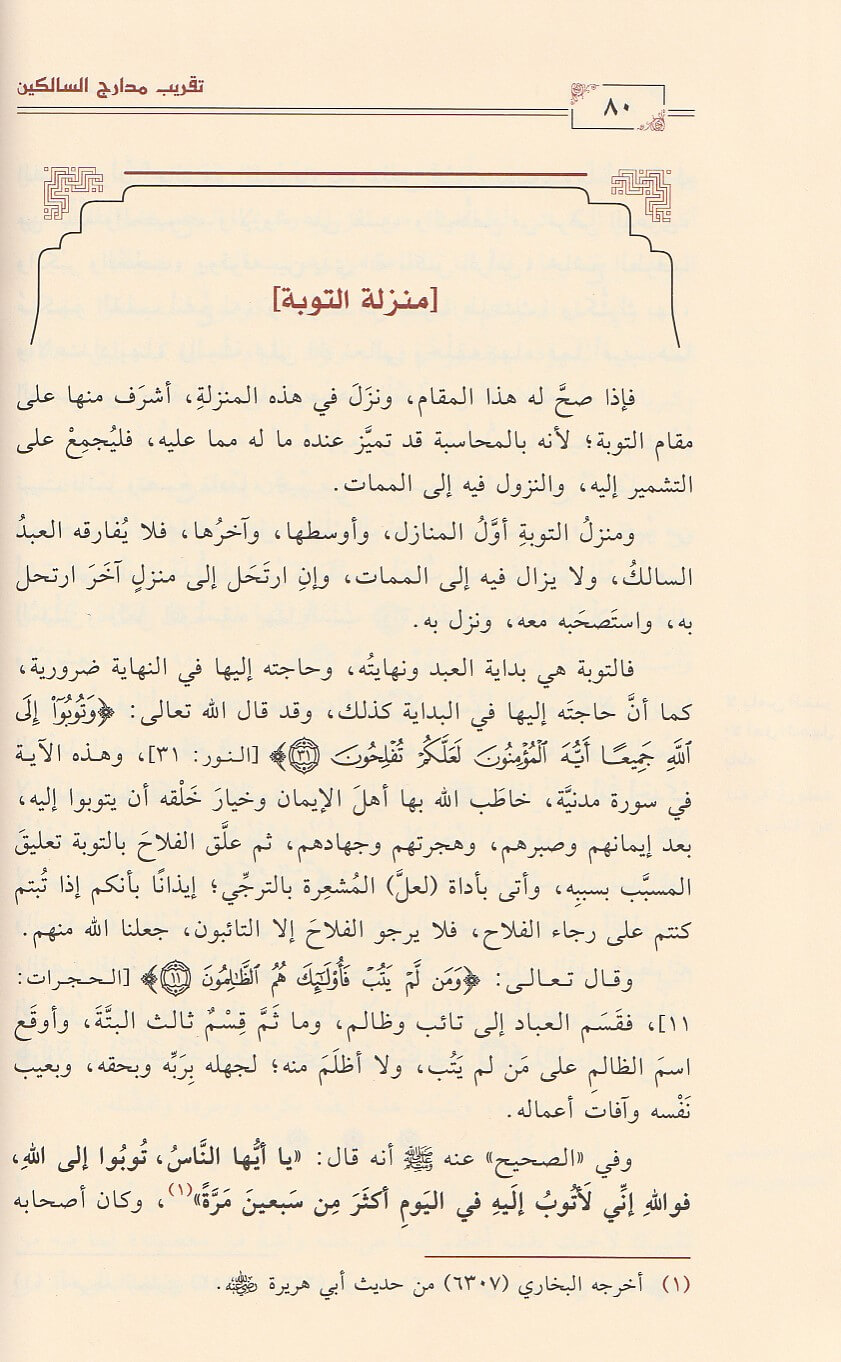 تقريب مدارج السالكين
٨٠
[منزلة التوبة]
فإذا صحَّ له هذا المقام، ونزَلَ في هذه المنزلةِ، أشرَف منها على
مقام التوبة؛ لأنه بالمحاسبة قد تميَّز عنده ما له مما عليه، فليُجمِعْ على
التشمير إليه، والنزول فيه إلى الممات.
ومنزلُ التوبةِ أوَّلُ المنازل، وأوسطها، وآخرُها، فلا يُفارقه العبدُ
السالكُ، ولا يزال فيه إلى الممات، وإنِ ارتَحَل إلى منزلٍ آخَرَ ارتحل
به، واستَصحَبه معه، ونزل به.
فالتوبة هي بداية العبد ونهايتُه، وحاجته إليها في النهاية ضرورية،
كما أنَّ حاجتَه إليها في البداية كذلك، وقد قال الله تعالى: ﴿وَتُوبُوٓاْ إِلَى
ٱللَّهِ جَمِيعًا أَيُّهَ ٱلْمُؤْمِنُونَ لَعَلَّكُمْ تُفْلِحُونَ ٣١﴾ [النور: ٣١]، وهذه الآية
في سورة مدنيَّة، خاطَب الله بها أهلَ الإيمان وخيارَ خَلْقه أن يتوبوا إليه،
بعد إيمانهم وصبرهم، وهجرتهم وجهادهم، ثم علَّق الفلاحَ بالتوبة تعليقَ
المسبَّب بسببِه، وأتى بأداة (لعلَّ) المُشعِرة بالترجِّي؛ إيذانًا بأنكم إذا تُبتم
كنتم على رجاء الفلاح، فلا يرجو الفلاحَ إلا التائبون، جعلنا الله منهم.
وقال تعالى: ﴿وَمَن لَّمْ يَتُبْ فَأُوْلَٰٓئِكَ هُمُ ٱلظَّٰلِمُونَ ١١﴾ [الحجرات:
١١]، فقَسَم العباد إلى تائب وظالم، وما ثَمَّ قِسْمٌ ثالث البتَّةَ، وأوقَع
اسمَ الظالمِ على مَن لم يَتُب، ولا أظلَمَ منه؛ لجهله بِرَبِّه وبحقه، وبعيب
نَفْسه وآفات أعماله.
وفي «الصحيح» عنه ﷺ أنه قال: «يا أيُّها النَّاسُ، تُوبُوا إلى اللهِ،
فواللهِ إنِّي لَأتُوبُ إلَيهِ في اليَومِ أكثَرَ مِن سَبعينَ مَرَّةً»(١)، وكان أصحابه
(١) أخرجه البخاري (٦٣٠٧) من حديث أبي هريرة رضي الله عنه.